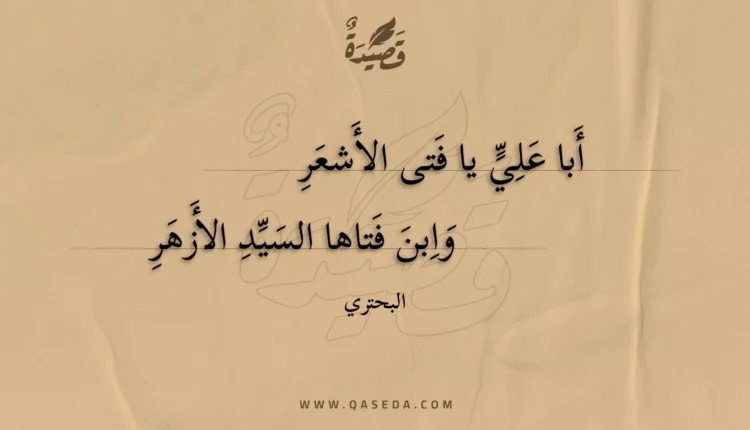 قَصِيدَةٌ
أَبا عَلِيٍّ يا فَتى الأَشعَرِ
وَاِبنَ فَتاها السَيِّدِ الأَزهَرِ
البحتري
WWW.QASEDA.COM